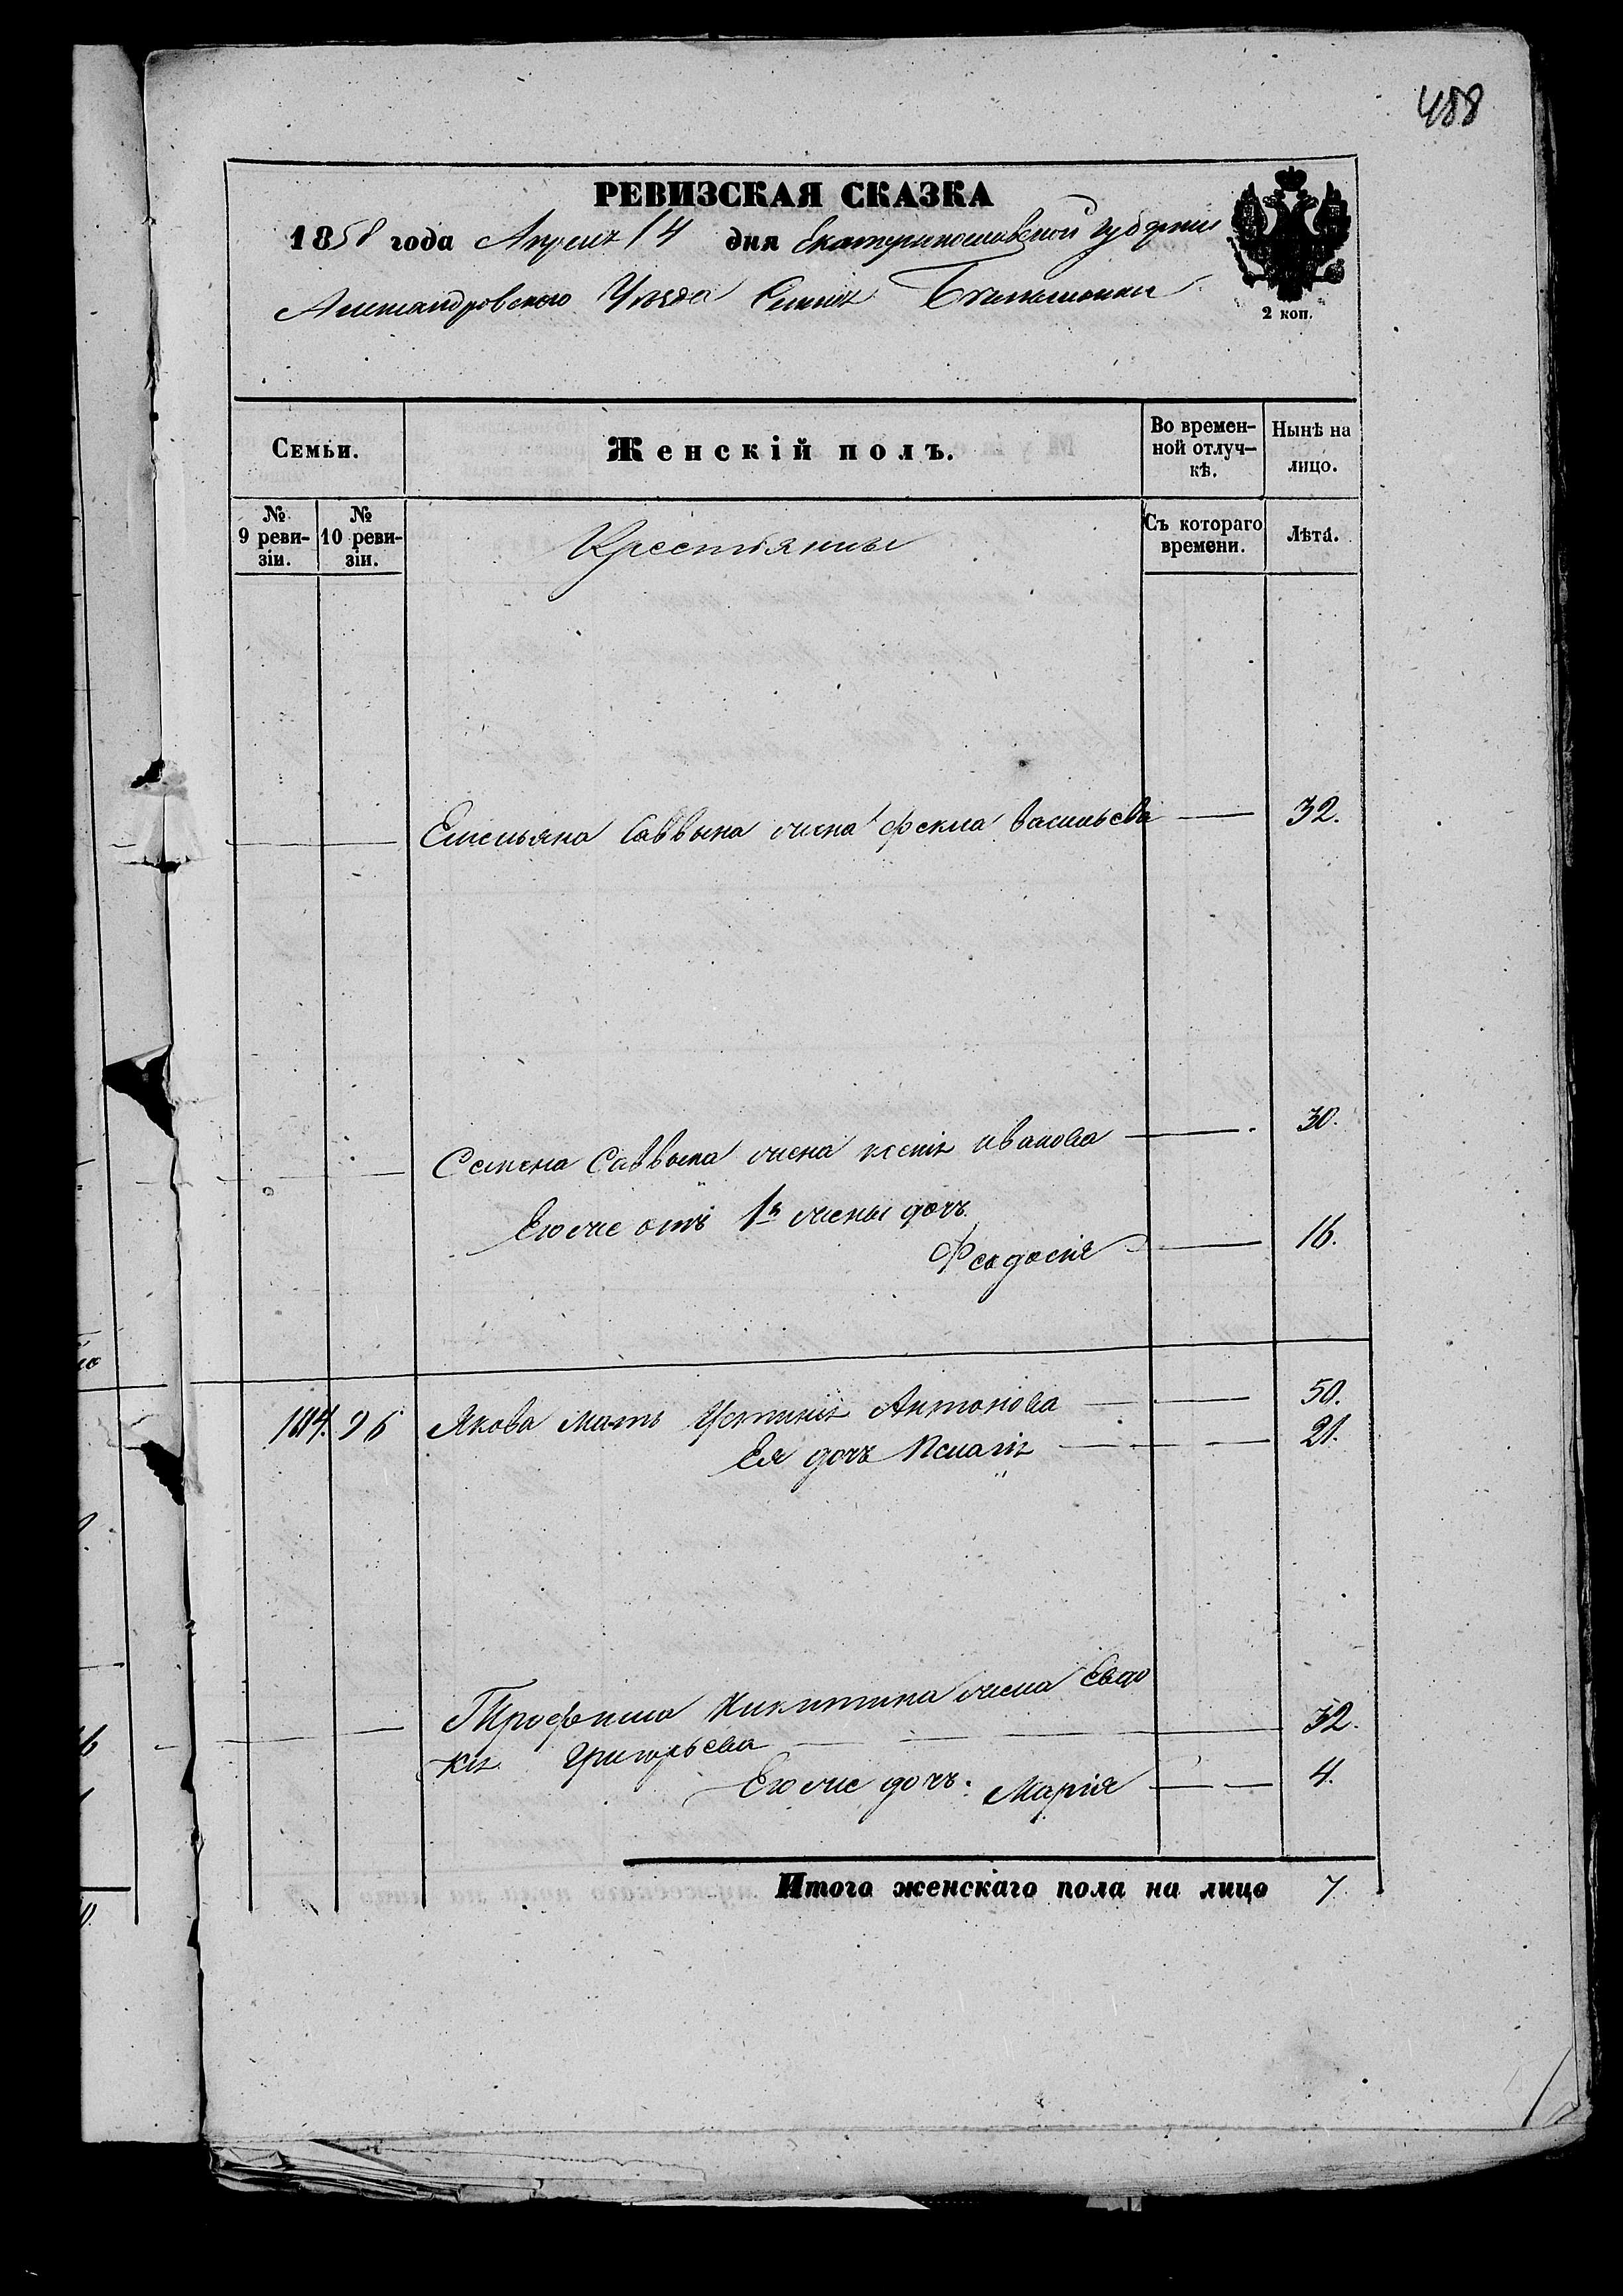 488
РЕВИЗСКАЯ СКАЗКА
1858 года Апреля 14 дня Екатеринославской Губернии
Александровского Уезда Селенія
2 коп.
Семьи.
Женскій полъ.
Во времен-
ной отлуч-
кѣ.
Нынѣ на
лицо.
№
9 реви-
зіи.
№
10 реви-
зіи.
Крестьяние
Съ котораго
времени.
Лѣта.
Емельяна Саввына жена Фекла Васильева 32.
Семена Саввына жена Ксенія Иванова 30.
Его же отъ 1й жены дочь
Феодосія 16.
114. 96 Якова мать Устинія Антонова 50.
Ея дочь 21.
Трофима Никитина жена Евдо
кія Григорьева 32.
Его же дочь Марія 4.
Итого женскаго пола на лицо 7.